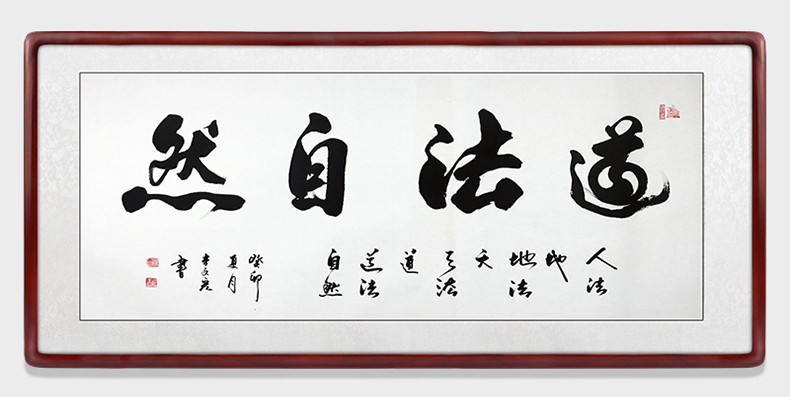 道法自然
人法
地
地法
天
天法
道
道法
自然
癸卯
夏月
書